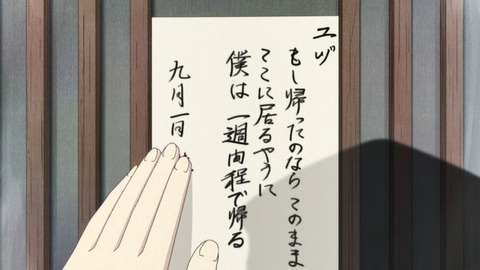 ユヅ
もし帰ったのなら このまま
ここに居るやうに
僕は 一週间程で帰る
九月一日